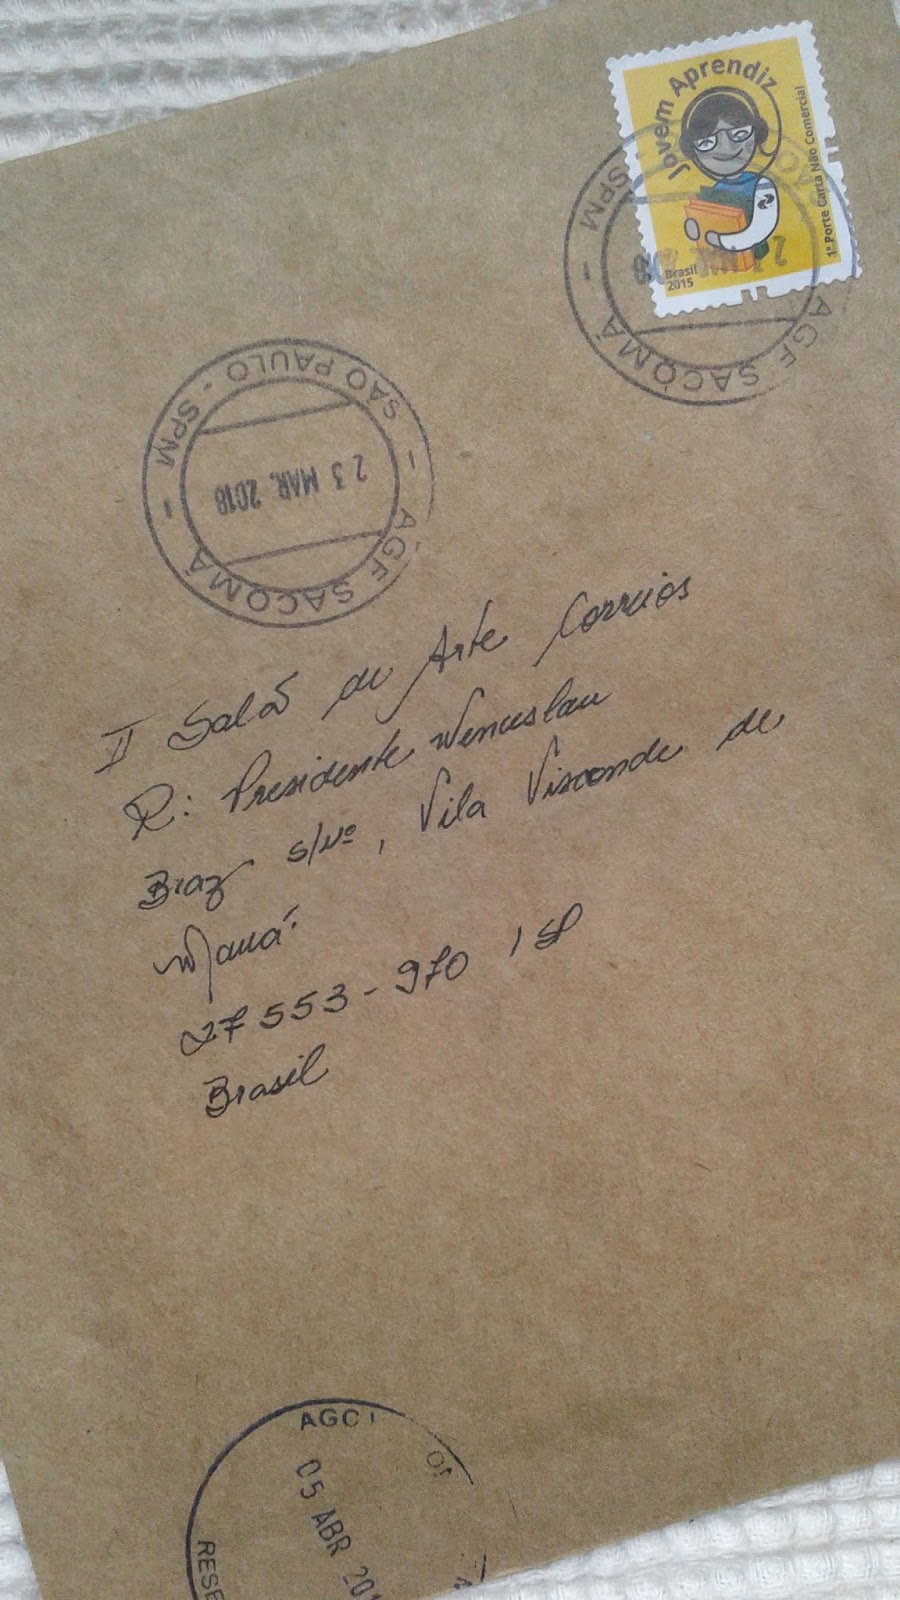 Jovem Aprendiz
1º Porte Carta Não Comercial
Brasil
2015
SPM - AGF SACOMÃ
23 MAR. 2018
SÃO PAULO - SPM -
23 MAR. 2018
AGF SACOMÃ
II Salão de Arte Correios
R: Presidente Wenceslau
Braz s/nº, Vila Visconde de
Mauá.
27553-970 / SP
Brasil
AGC
05 ABR 201
RESE